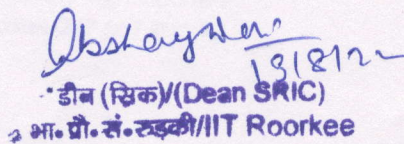 19/8/22
डीन (स्रिक)/(Dean SRIC)
भा॰ प्रौ॰ सं॰ रुड़की/IIT Roorkee